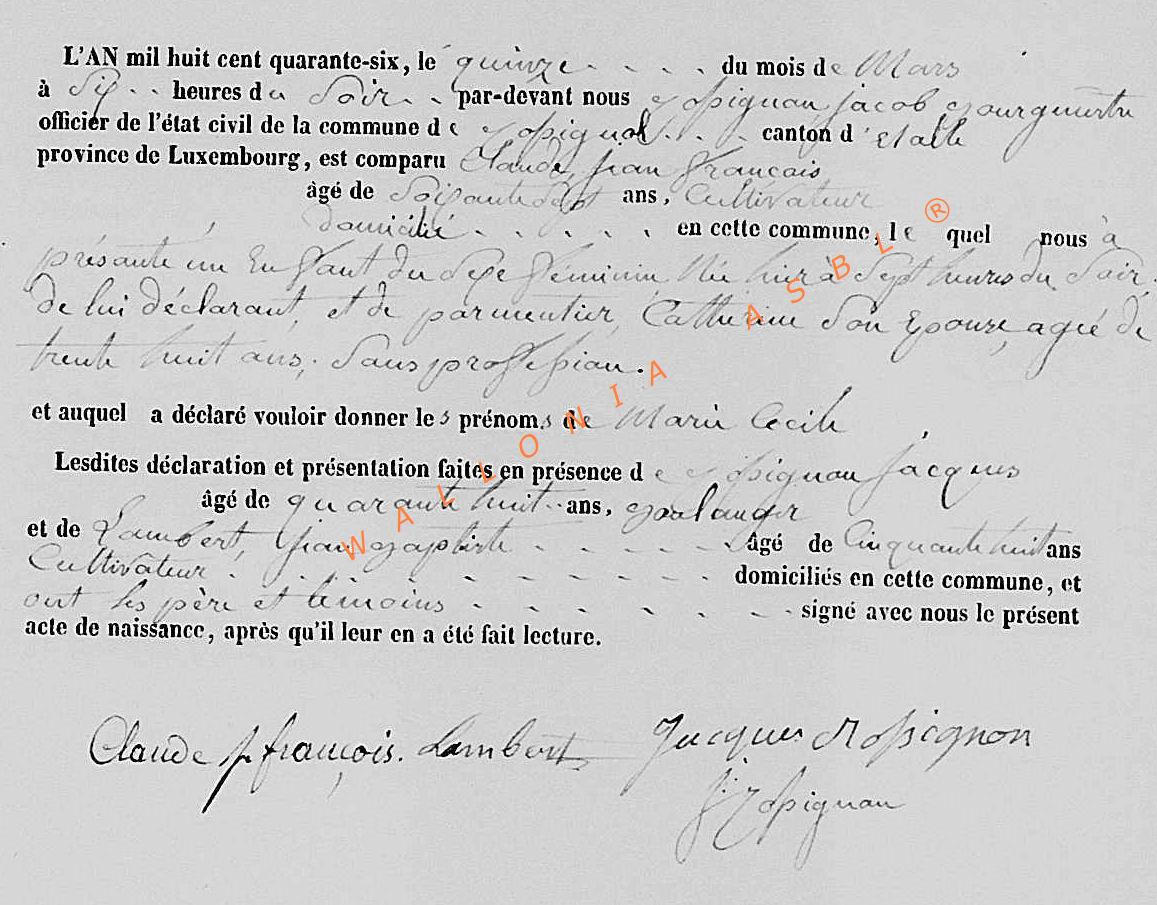 L'AN mil huit cent quarante-six, le quinze - - - - du mois de Mars
à Six - - heures du Soir - - par-devant nous Rossignon, Jacob Bourgmestre
officier de l'état civil de la commune de Rossignol - - - canton d'Etalle
province de Luxembourg, est comparu Claude, Jean François
âgé de Soixante Sept ans, Cultivateur
domicilié - - - - - en cette commune, le quel nous à
présanté un Enfant du Sexe féminin Née hier à Sept heures du Soir
de lui déclarant, et de parmentier, Catherine Son Epouse, ageé de
trente huit ans, Sans profession.
et auquel a déclaré vouloir donner les prénoms de Marie Cecile
Lesdites déclaration et présentation faites en présence de Rossignon Jacques
âgé de quarante huit - - ans, Boulanger
et de Lambert, Jean Baptiste - - - - - âgé de Cinquante huit ans
Cultivateur - - - - - - - - - domiciliés en cette commune, et
ont les père et témoins - - - - - - signé avec nous le présent
acte de naissance, après qu'il leur en a été fait lecture.
Claude J françois. Lambert Jacques Rossignon
J: Rossignon
WALLONIA ASBL ®